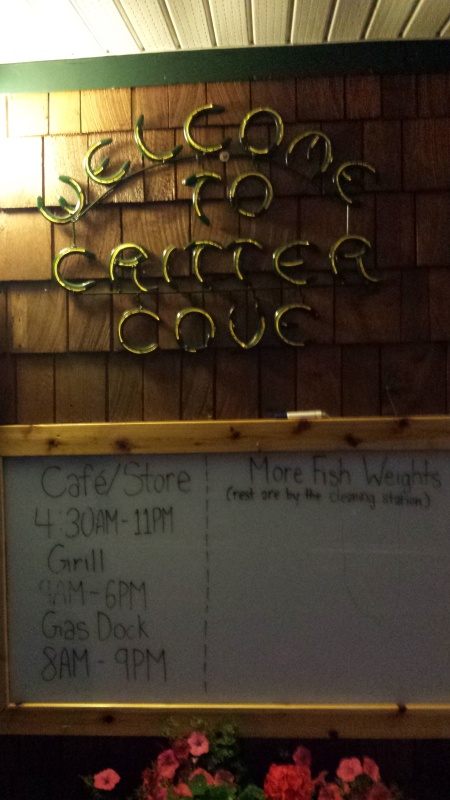 WELCOME
TO
CRITTER
COVE
Café/Store
4:30AM-11PM
Grill
9AM-6PM
Gas Dock
8AM-9PM
More Fish Weights
(rest are by the cleaning station)